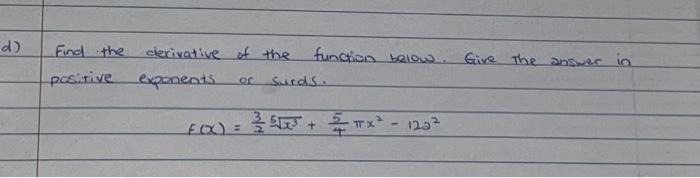 d) Find the derivative of the function below. Give the answer in
positive exponents or surds.
F(x) = 3/2 ⁵√x³ + 5/4 πx² - 12a²